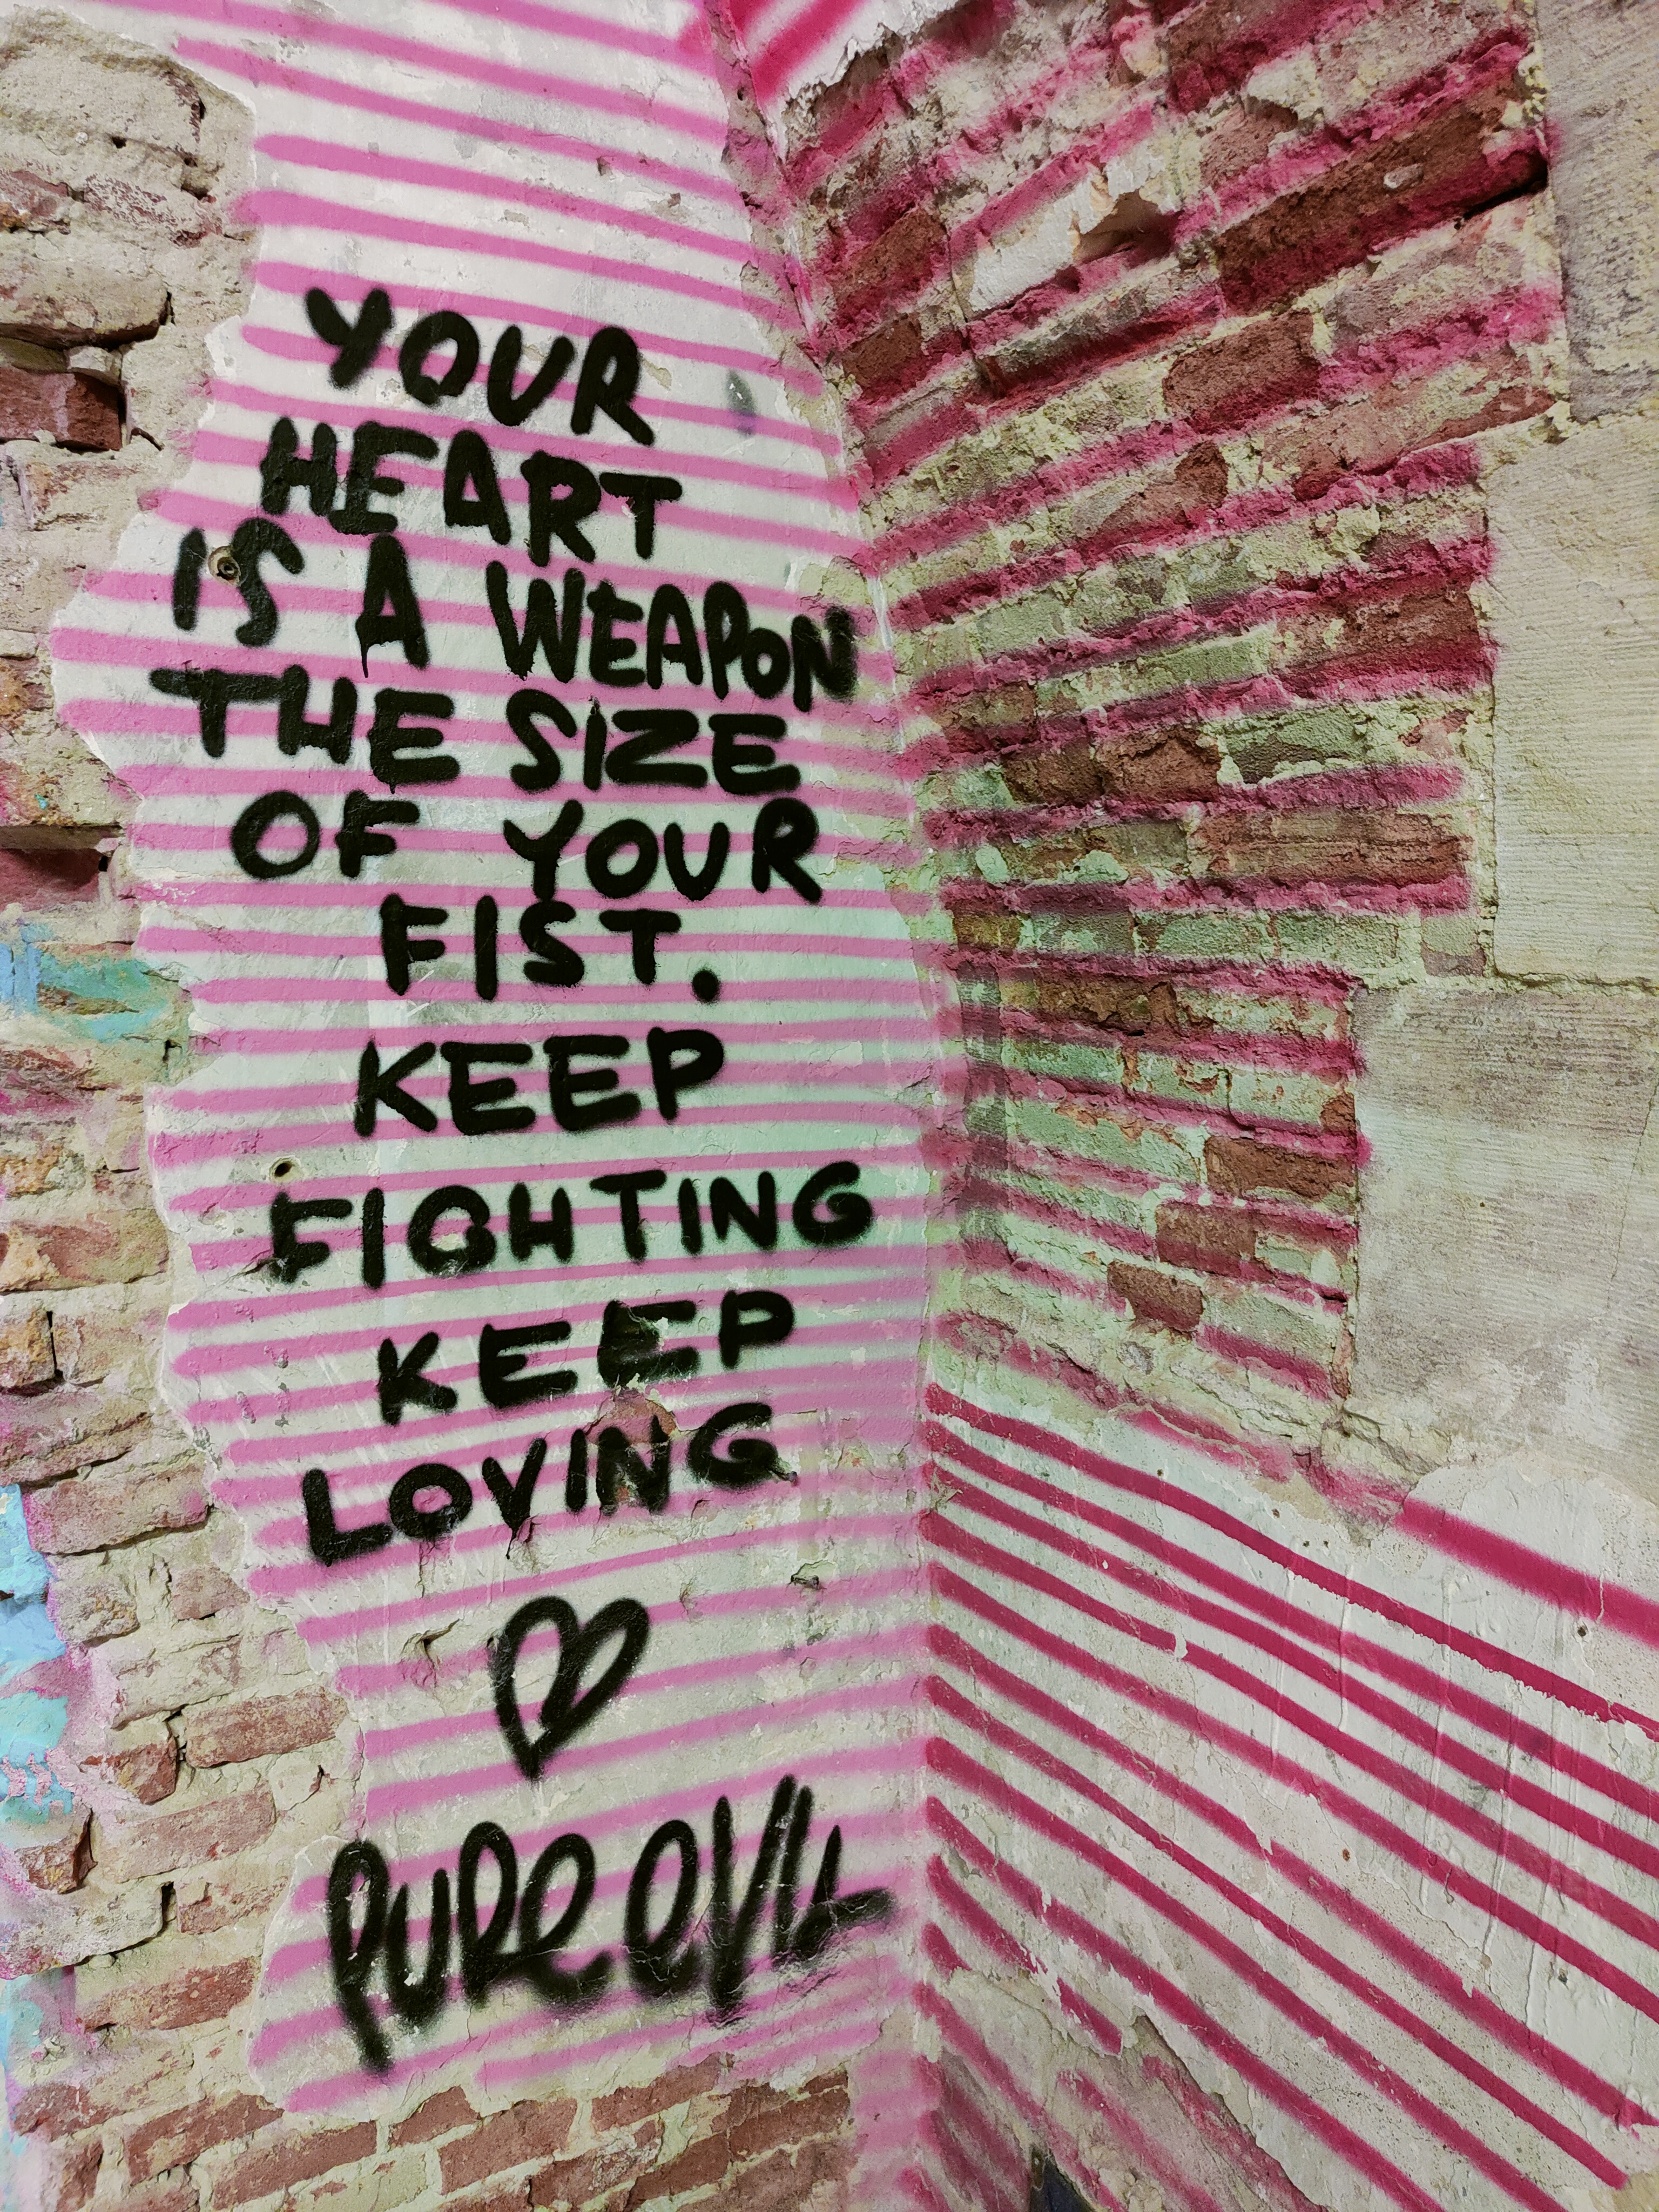 YOUR
HEART
IS A WEAPON
THE SIZE
OF YOUR
FIST.
KEEP
FIGHTING
KEEP
LOVING
PURE EVIL